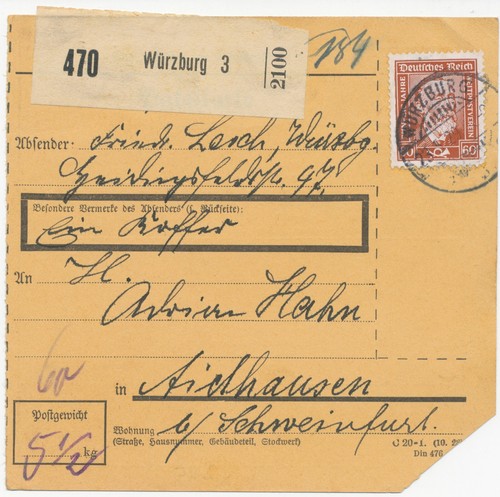 470 Würzburg 3 2100
184
Deutsches Reich
WÜRZBURG
60
Absender: Friedr. Lesch, Würzbg.
Heidingsfeldstr. 97
Besondere Vermerke des Absenders (s. Rückseite):
Ein Koffer
An H.
Adrian Hahn
in Aidhausen
b/ Schweinfurt.
Wohnung
(Straße, Hausnummer, Gebäudeteil, Stockwerk)
Postgewicht
5 1/2 kg
C 20-1. (10. 28)
Din 476